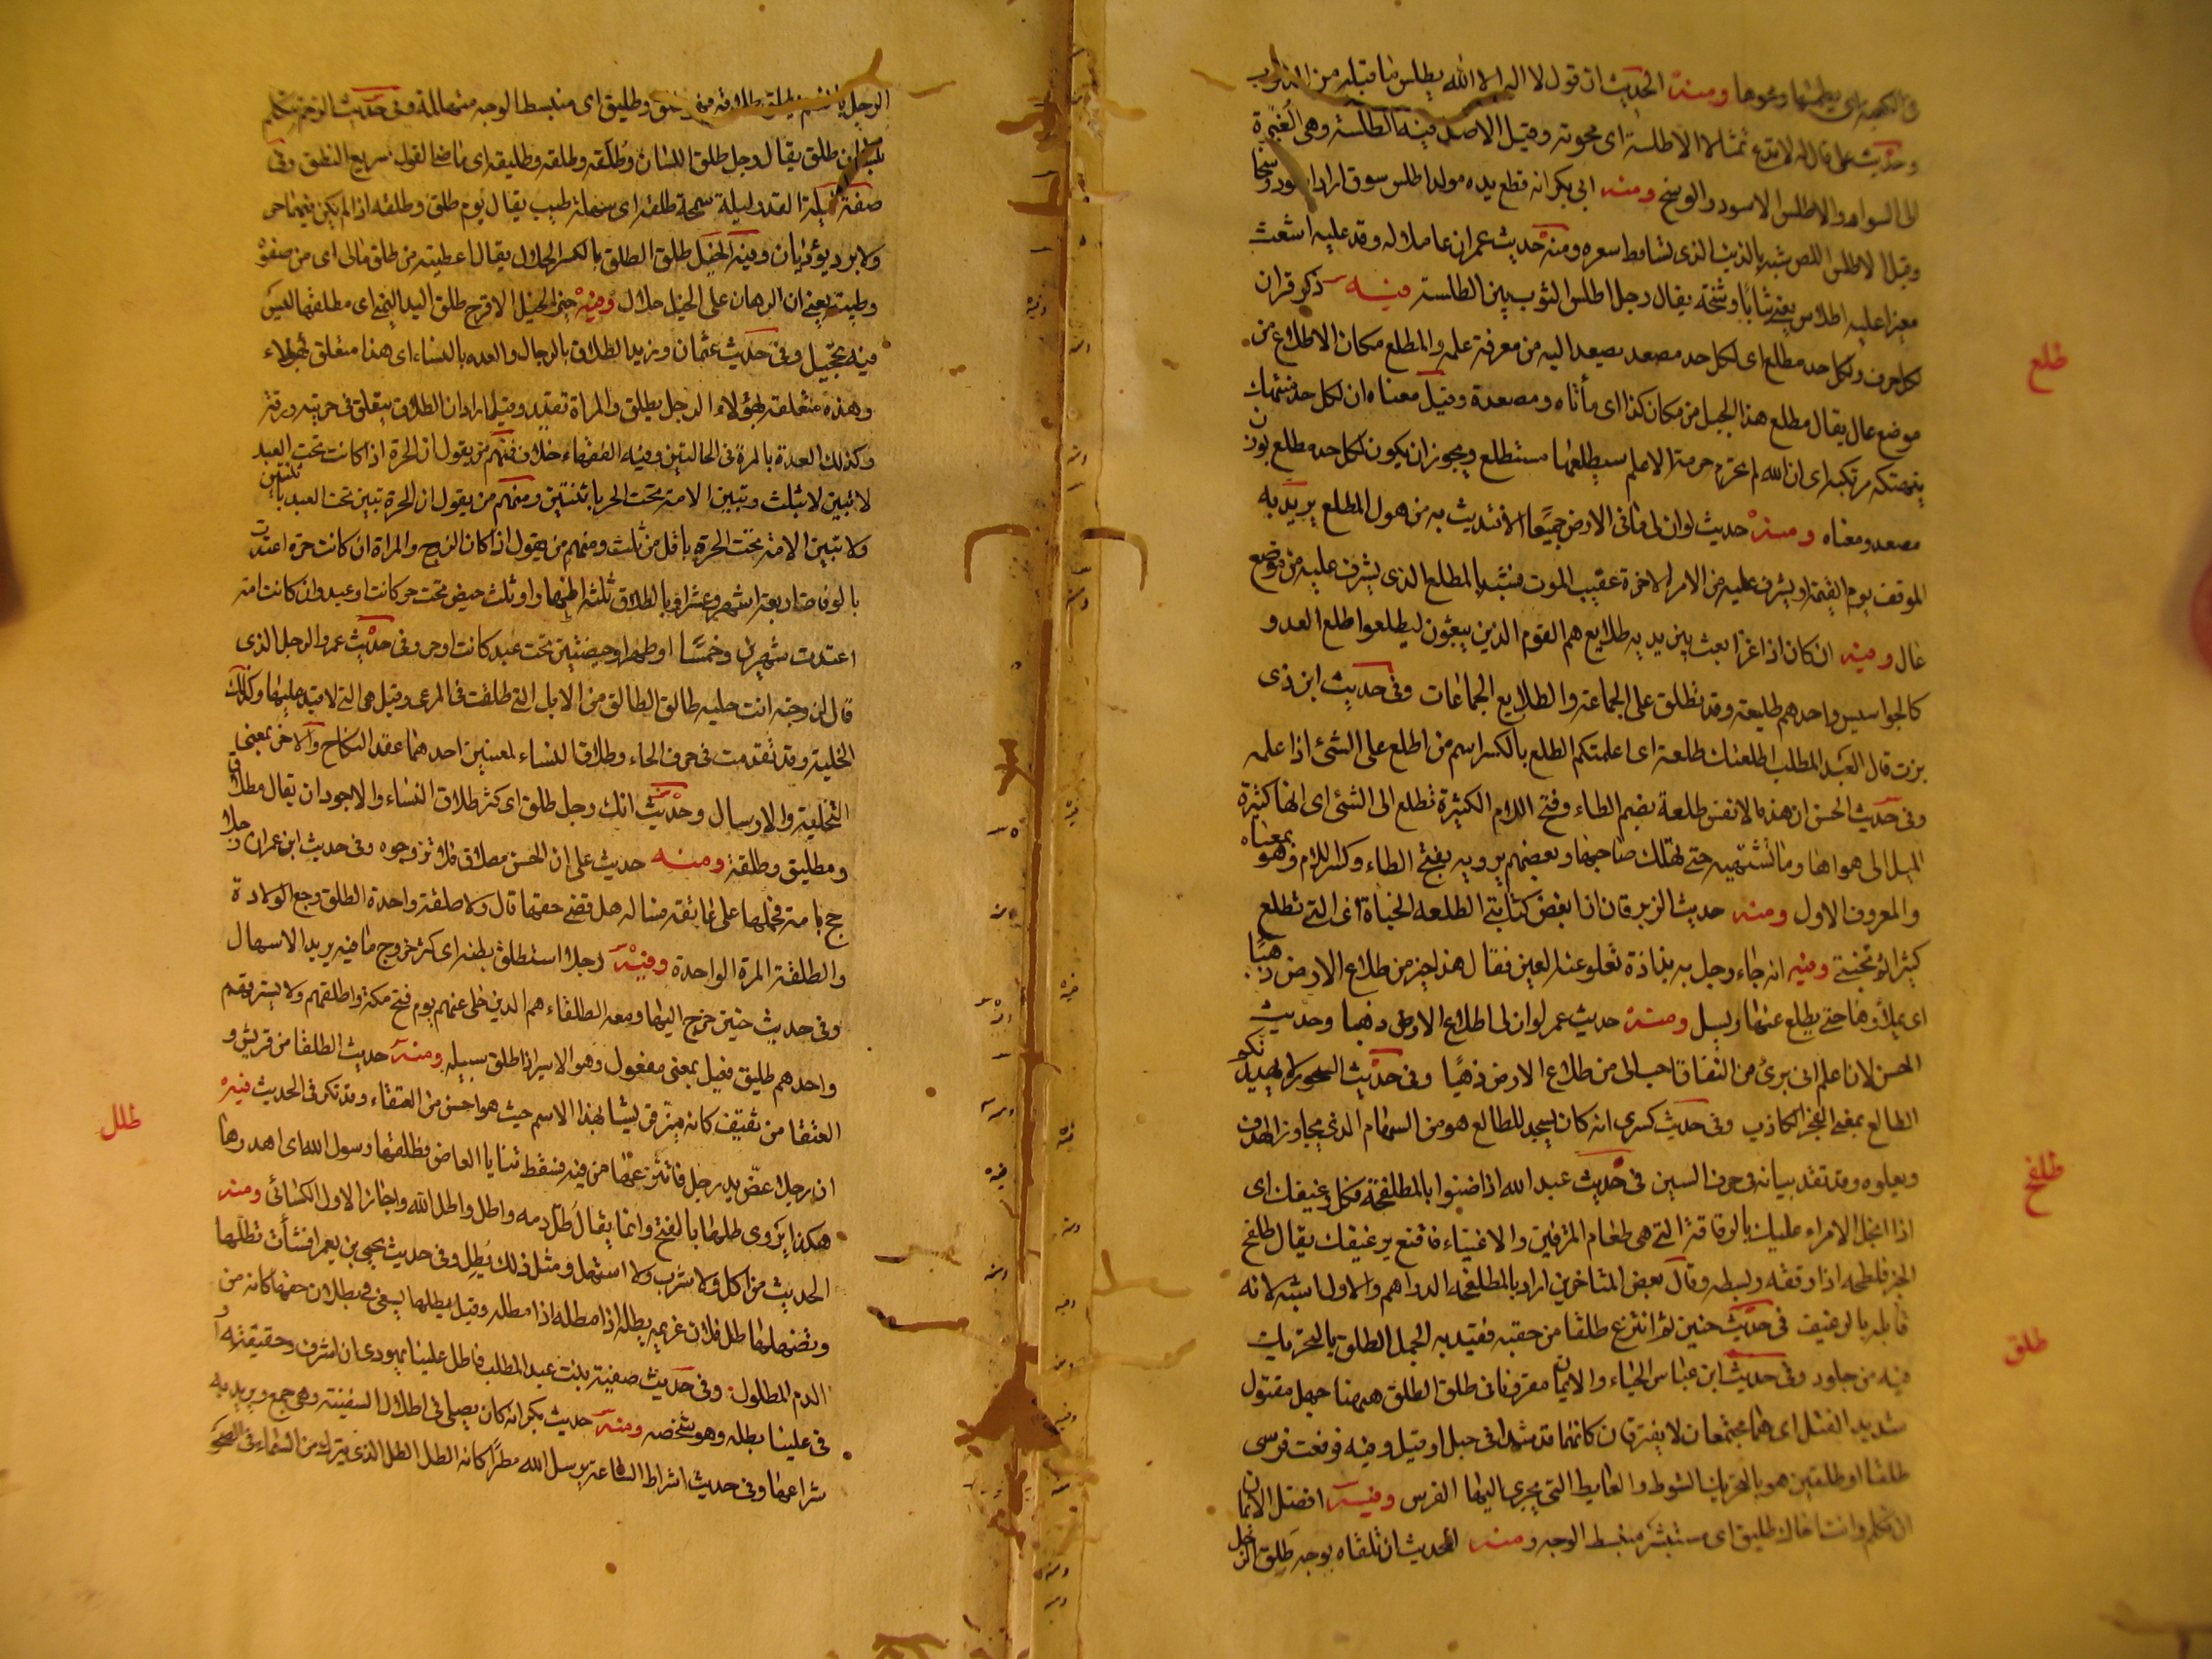 ومنه الحديث ان قول لا اله الا الله يطلس ما قبله من الذنوب
وحديث على قال له لا تدع تمثالا الا طلسته اى محوته وقيل الاصل فيه الطلسة وهى الغبرة
الى السواد والاطلس الاسود والوسخ ومنه ابى بكر انه قطع يد مولد اطلس سرق اراد اسود وسخا
وقيل الاطلس اللص شبه بالذئب الذى تساقط شعره ومنه حديث عمر ان عاملا له وفد عليه اشعث
مغبرا عليه اطلاس يعنى ثيابا وسخة يقال رجل اطلس الثوب بين الطلسة فيه ذكر قران
لكل حرف ولكل حد مطلع اى لكل حد مصعد يصعد اليه من معرفة علمه والمطلع مكان الاطلاع من
موضع عال يقال مطلع هذا الجبل من مكان كذا اى مأتاه ومصعده وقيل معناه ان لكل حد منتهك
ينتهكه مرتكبه اى ان الله لم يحرم حرمة الا علم سيطلعها مستطلع ويجوز ان يكون لكل حد مطلع بوزن
مصعد ومعناه ومنه حديث لو ان لى ما فى الارض جميعا لافتديت به من هول المطلع يريد به
الموقف يوم القيمة او يشرف عليه من الامر الاخرة عقيب الموت فشبه بالمطلع الذى يشرف عليه من موضع
عال ومنه ان كان اذا غزا بعث بين يديه طلايع هم القوم الذين يبعثون ليطلعوا طلع العدو
كالجواسيس واحدهم طليعة وقد تطلق على الجماعة والطلايع الجماعات وفى حديث ابن ذى
يزن قال لعبد المطلب اطلعتك طلعه اى اعلمتكم الطلع بالكسر اسم من اطلع على الشئ اذا علمه
وفى حديث الحسن ان هذه الانفس طلعة بضم الطاء وفتح اللام الكثيرة تطلع الى الشئ اى انها كثيرة
الميل الى هواها وما تشتهيه حتى تهلك صاحبها وبعضهم يرويه بفتح الطاء وكسر اللام وهو بمعناه
والمعروف الاول ومنه حديث الزبرقان ان ابغض كنائنى الطلعه الخباة اى التى تطلع
كثيرا ثم تختبئ وفيه انه جاء رجل به بذاذة تعلو عنه العين فقال هذا خير من طلاع الارض ذهبا
اى يملاوها حتى يطلع عنها ويسيل ومنه حديث عمر لو ان لى طلاع الارض ذهبا وحديث
الحسن لان اعلم انى برئ من النفاق احب الى من طلاع الارض ذهبا وفى حديث السحور لا يهيدنكم
الطالع بمعنى الفجر الكاذب وفى حديث كسرى انه كان يسجد للطالع هو من السهام الذى يجاوز الهدف
ويعلوه وقد تقدم بيانه فى حرف السين فى حديث عبد الله اذا ضنوا بالمطلفحة فكل رغيفك اى
اذا بخل الامراء عليك بالرقاقة التى هى طعام المترفين والاغنياء فاقنع برغيفك يقال طلفح
الخبز فلطحه اذا رققه وبسطه وقال بعض المتاخرين اراد بالمطلفحة الدراهم والاول اشبه لانه
قابله بالرغيف فى حديث حنين ثم انتزع طلقا من حقبه فقيد به الجمل الطلق بالتحريك
قيد من جلود وفى حديث ابن عباس الحياء والايمان مقرونان فى طلق الطلق ههنا حبل مفتول
شديد الفتل اى هما مجتمعان لا يفترقان كانهما قد شدا فى حبل او قيد وفيه فرفعت فرسى
طلقا او طلقين هو بالتحريك الشوط والغايط التى يجرى اليها الفرس وفيه افضل الايمان
ان تكلم وانت اخاك طليق اى مستبشر منبسط الوجه ومنه الحديث ان تلقاه بوجه طلق
طلع
طلفح
طلق
وطليق اى منبسط الوجه متهلله وفى حديث الرحم تتكلم
بلسان طلق يقال رجل طلق اللسان وطلقه وطلقه وطليقه اى ماضى القول سريع النطق وفى
صفة ليلة القدر ليلة سمحة طلقه اى سهلة طيب يقال يوم طلق وطلقه اذا لم يكن فيهما حر
ولا برد يؤذيان وفيه الخيل طلق الطلق بالكسر الحلال يقال اعطيته من طلق مالى اى من صفوه
وطيبه يعنى ان الرهان على الخيل حلال وفيه خير الخيل الاقرح طلق اليد اليمنى اى مطلقها ليس
فيه تحجيل وفى حديث عثمان وزيد الطلاق بالرجال والعده بالنساء اى هذا متعلق بهولاء
وهذه متعلقه بهؤلاء الرجل يطلق والمراة تعتد وقيل اراد ان الطلاق يتعلق فى حريته ورقه
وكذلك العدة بالمرة فى الحالتين وفيه الفقهاء خلاف فمنهم من يقول ان الحرة اذا كانت تحت العبد
لا تبين لا بثلث وتبين الامة تحت الحر باثنتين ومنهم من يقول ان الحرة تبين تحت العبد باثنتين
ولا تبين الامة تحت الحرة باقل من ثلث ومنهم من يقول اذا كان الزوج والمراة ان كانت حرة اعتدت
بالوفاة اربعة اشهر وعشرا وبالطلاق ثلثه اطهار او ثلث حيض تحت حر كانت او عبد وان كانت امة
اعتدت شهرين وخمسا او طهرا وحيضتين تحت عبد كانت او حر وفى حديث عمر والرجل الذى
قال لزوجته انت خليه طالق الطالق من الابل التى طلقت فى المرعى وقيل هى التى لا قيد عليها وكذلك
الخلية وقد تقدمت فى حرف الخاء وطلاق النساء لمعنيين احدهما عقد النكاح والاخر بمعنى
التخلية والارسال وحديث انك رجل طلق اى كثير طلاق النساء والاجود ان يقال مطلاق
ومطليق وطلقة ومنه حديث على ان الحسن مطلاق فلا تزوجوه وفى حديث ابن عمر ان رجلا
حج بامه فحملها على عاتقه فساله هل قضى حقها قال ولا طلقة واحدة الطلق وجع الولادة
والطلقة المرة الواحدة وفيه رجلا استطلق بطنه اى كثر خروج ما فيه يريد الاسهال
وفى حديث حنين خرج اليها ومعه الطلقاء هم الذين خلى عنهم يوم فتح مكة واطلقهم ولا يسترقهم
واحدهم طليق فعيل بمعنى مفعول وهو الاسير اذا اطلق سبيله ومنه حديث الطلقا من قريش و
العتقا من ثقيف كانه ميز قريشا بهذا الاسم حيث هو احسن من العتقاء وقد تكرر فى الحديث فيه
ان رجلا عض يد رجل فانتزعها من فيه فسقط ثنايا العاض فطلها رسول الله اى اهدرها
هكذا يروى طلها بالفتح وانما يقال طل دمه واطل واطل الله واجاز الاول الكسائى ومنه
الحديث من اكل ولا شرب ولا استهل ومثل ذلك يطل وفى حديث يحيى بن يعمر انشأت تطلها
وتضهلها طل فلان غريمه يطله اذا مطله وقيل يطلها يسعى فى بطلان حقها كانه من
الدم المطلول وفى حديث صفية بنت عبد المطلب فاطل علينا يهودى ان اشرف وحقيقته
فى علينا بطلله وهو شخصه ومنه حديث بكر انه كان يصلى فى اطلال السفينة وهى جمع ويريد به
شراعها وفى حديث اشراط الساعة يرسل الله مطرا كانه الطل الطل الذى ينزل من السماء فى الصحو
طلل